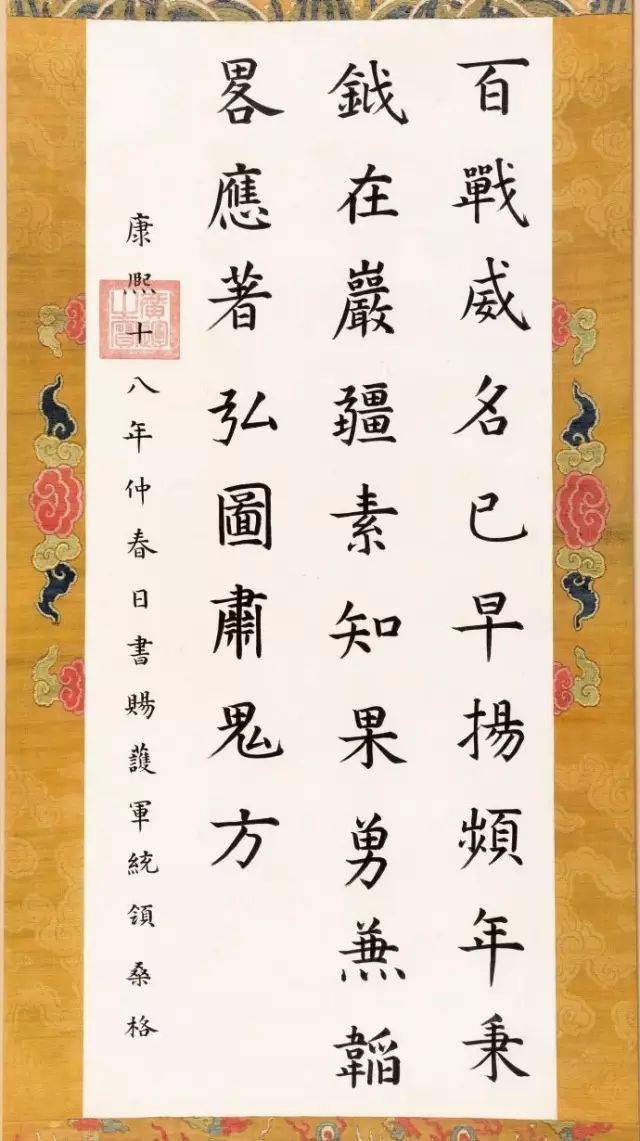 百戰威名已早揚頻年秉
鉞在巖疆素知果勇兼韜
畧應著弘圖肅鬼方
康熙十八年仲春日書賜護軍統領桑格
廣運
之寶